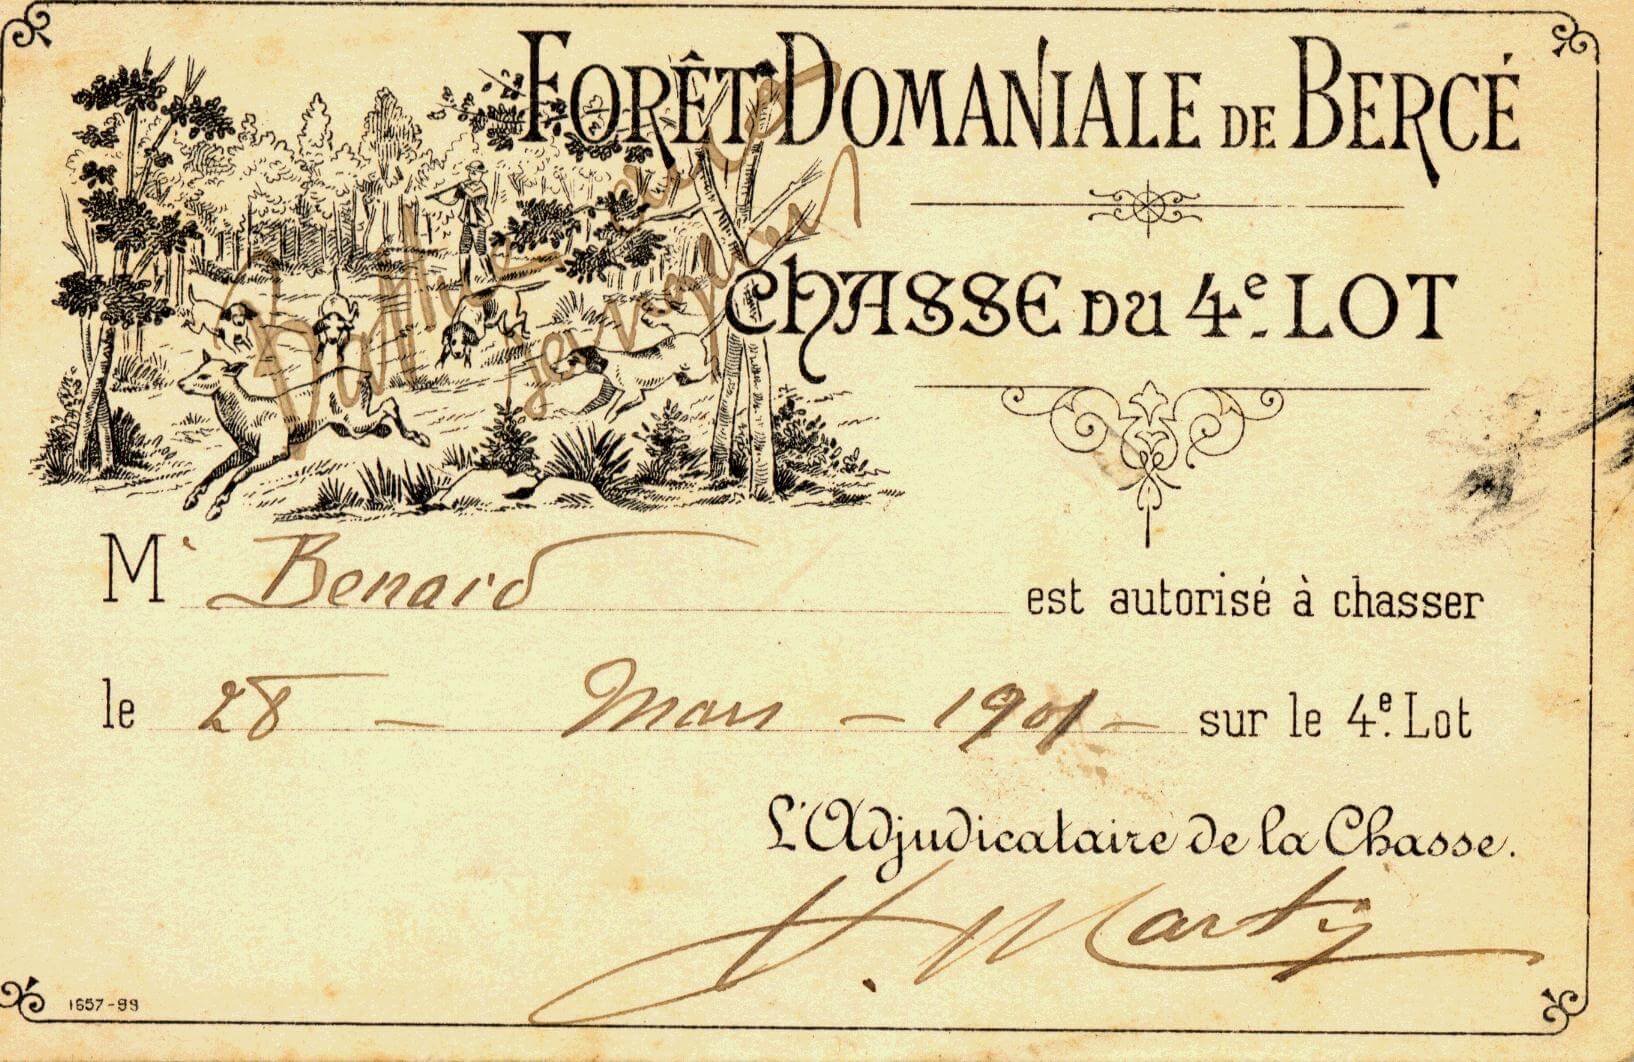 Forêt Domaniale de Bercé
Chasse du 4e. Lot
Mr Benard est autorisé à chasser
le 28 - Mars - 1901 - sur le 4e. Lot
L'Adjudicataire de la Chasse.
1657-99